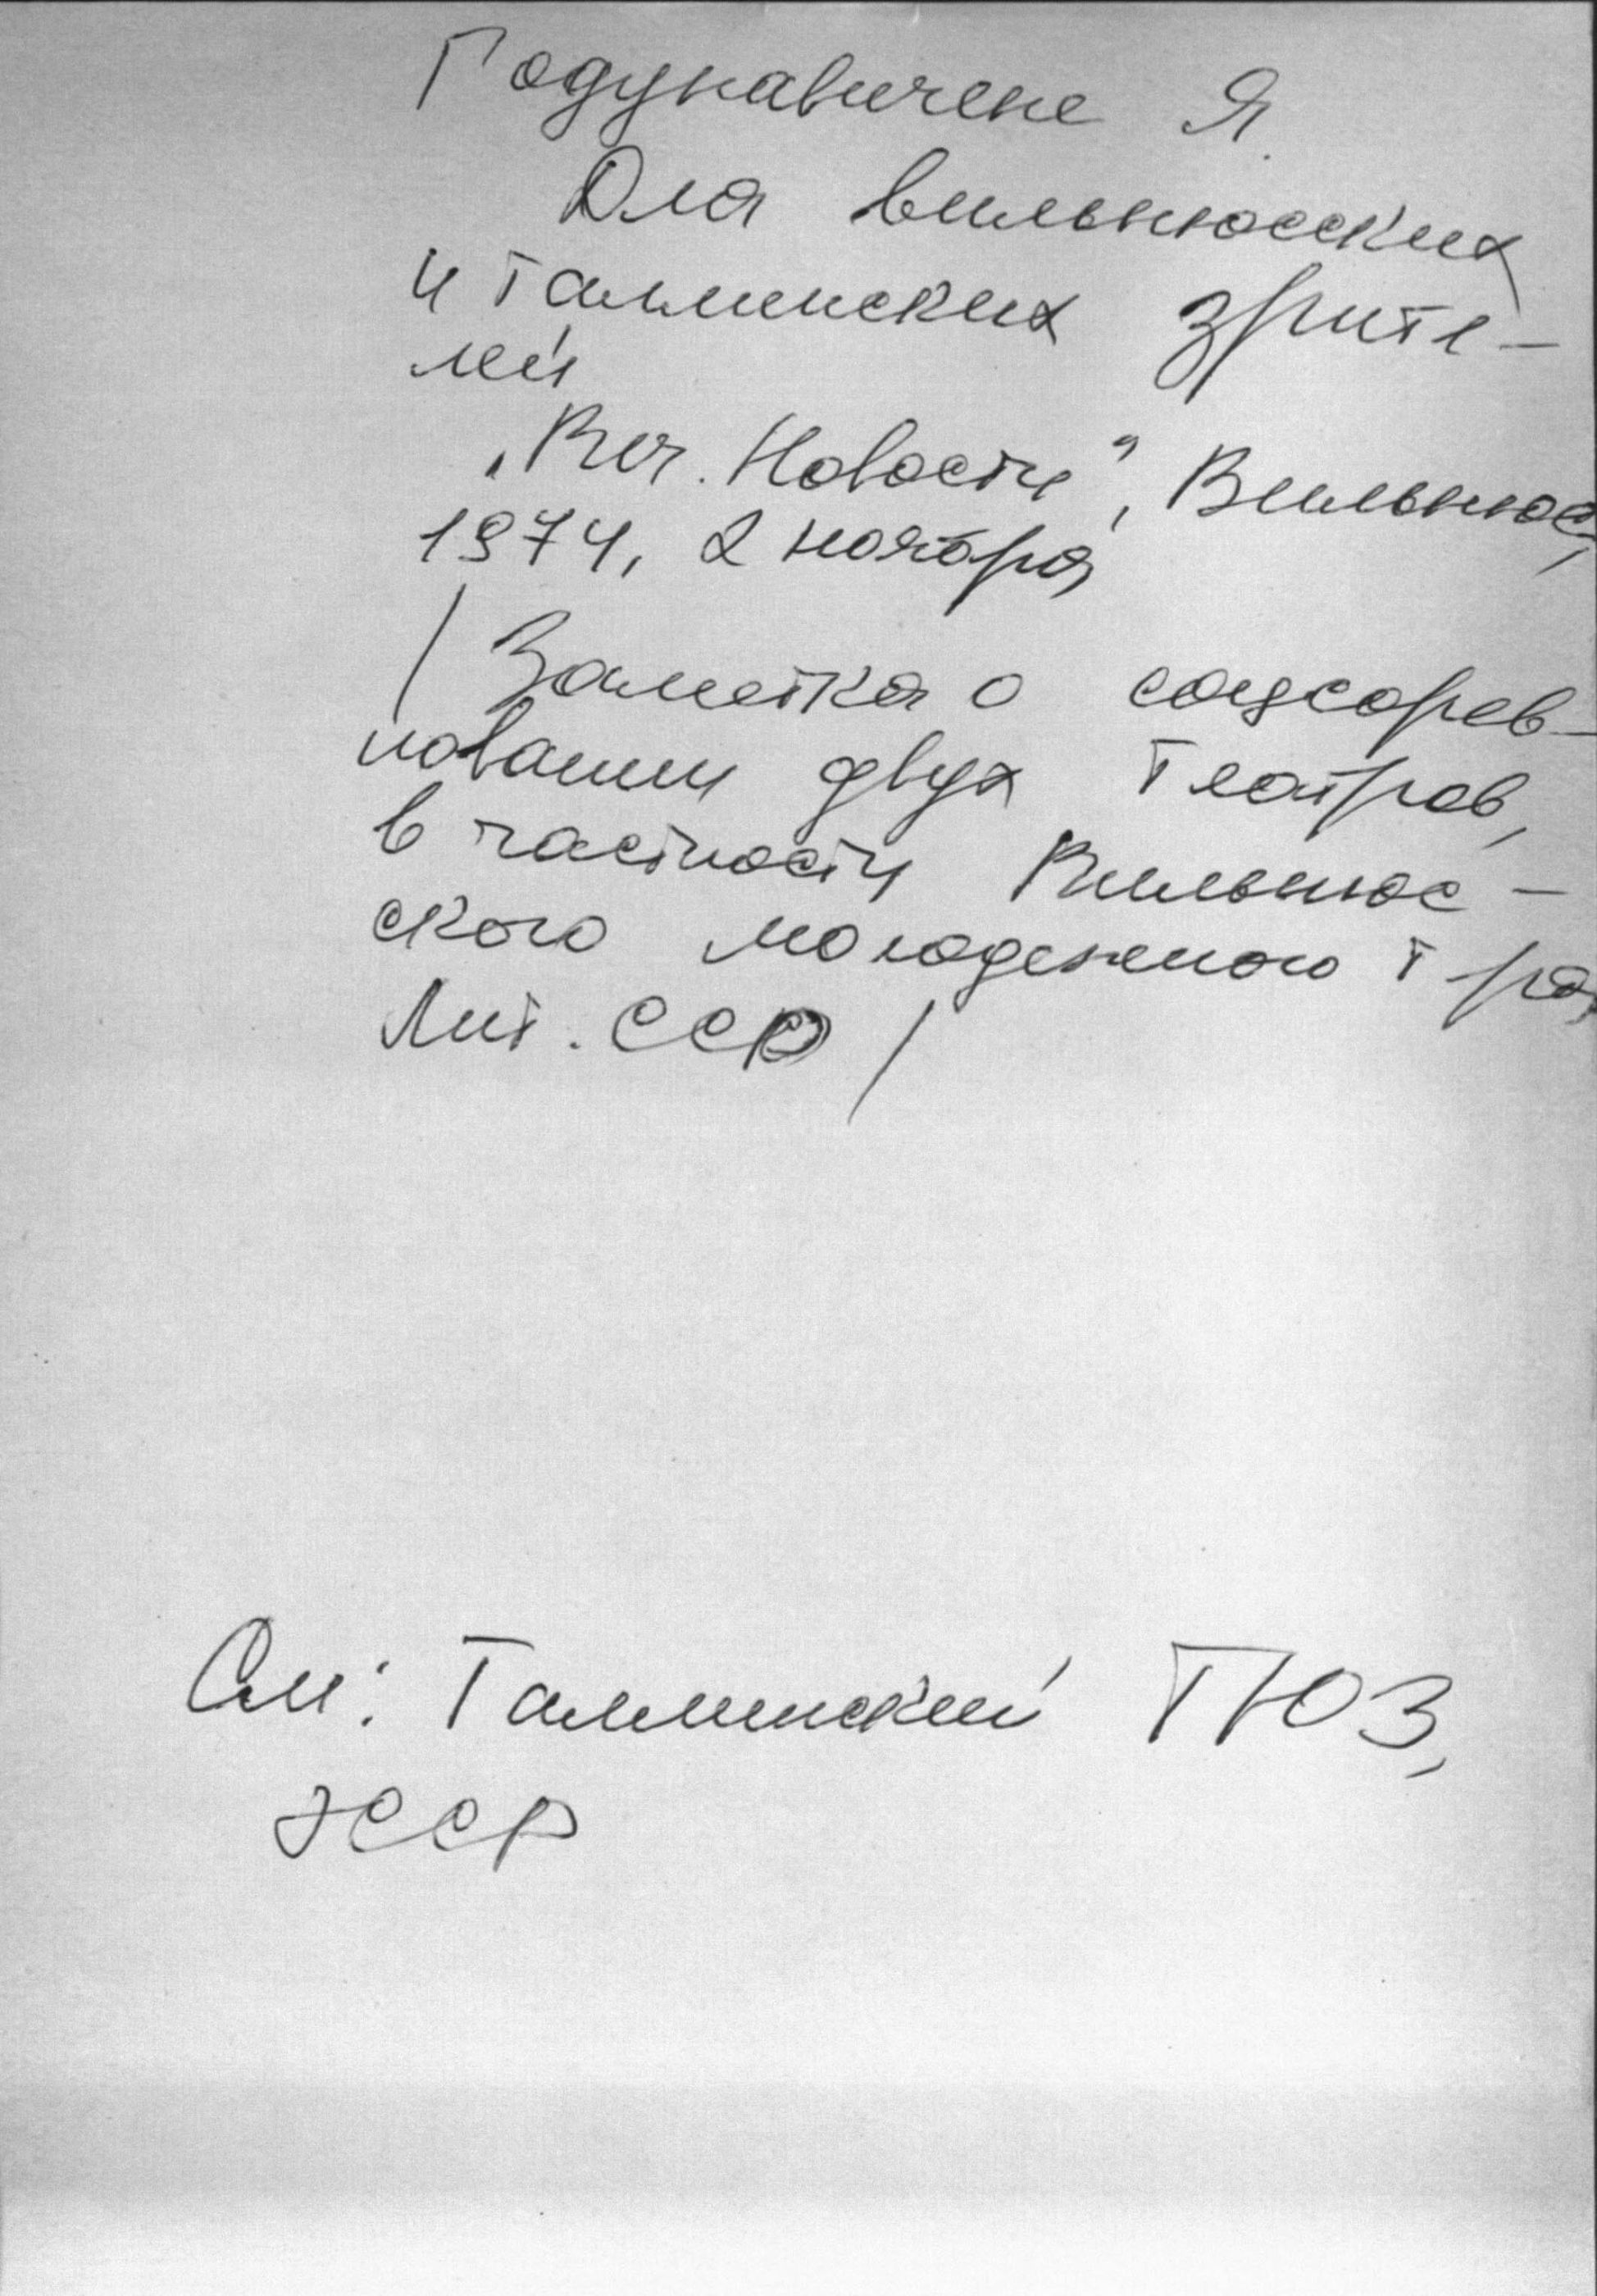 Годунавичене Я.
Для вильнюсских
и таллинских зрите-
лей
„Веч. Новости", Вильнюс,
1974, 2 ноября
/ Заметка о соцсорев-
новании двух театров,
в частности Вильнюс-
ского молодежного т-ра,
Лит. ССР /
См: Таллинский ТЮЗ,
ЭССР